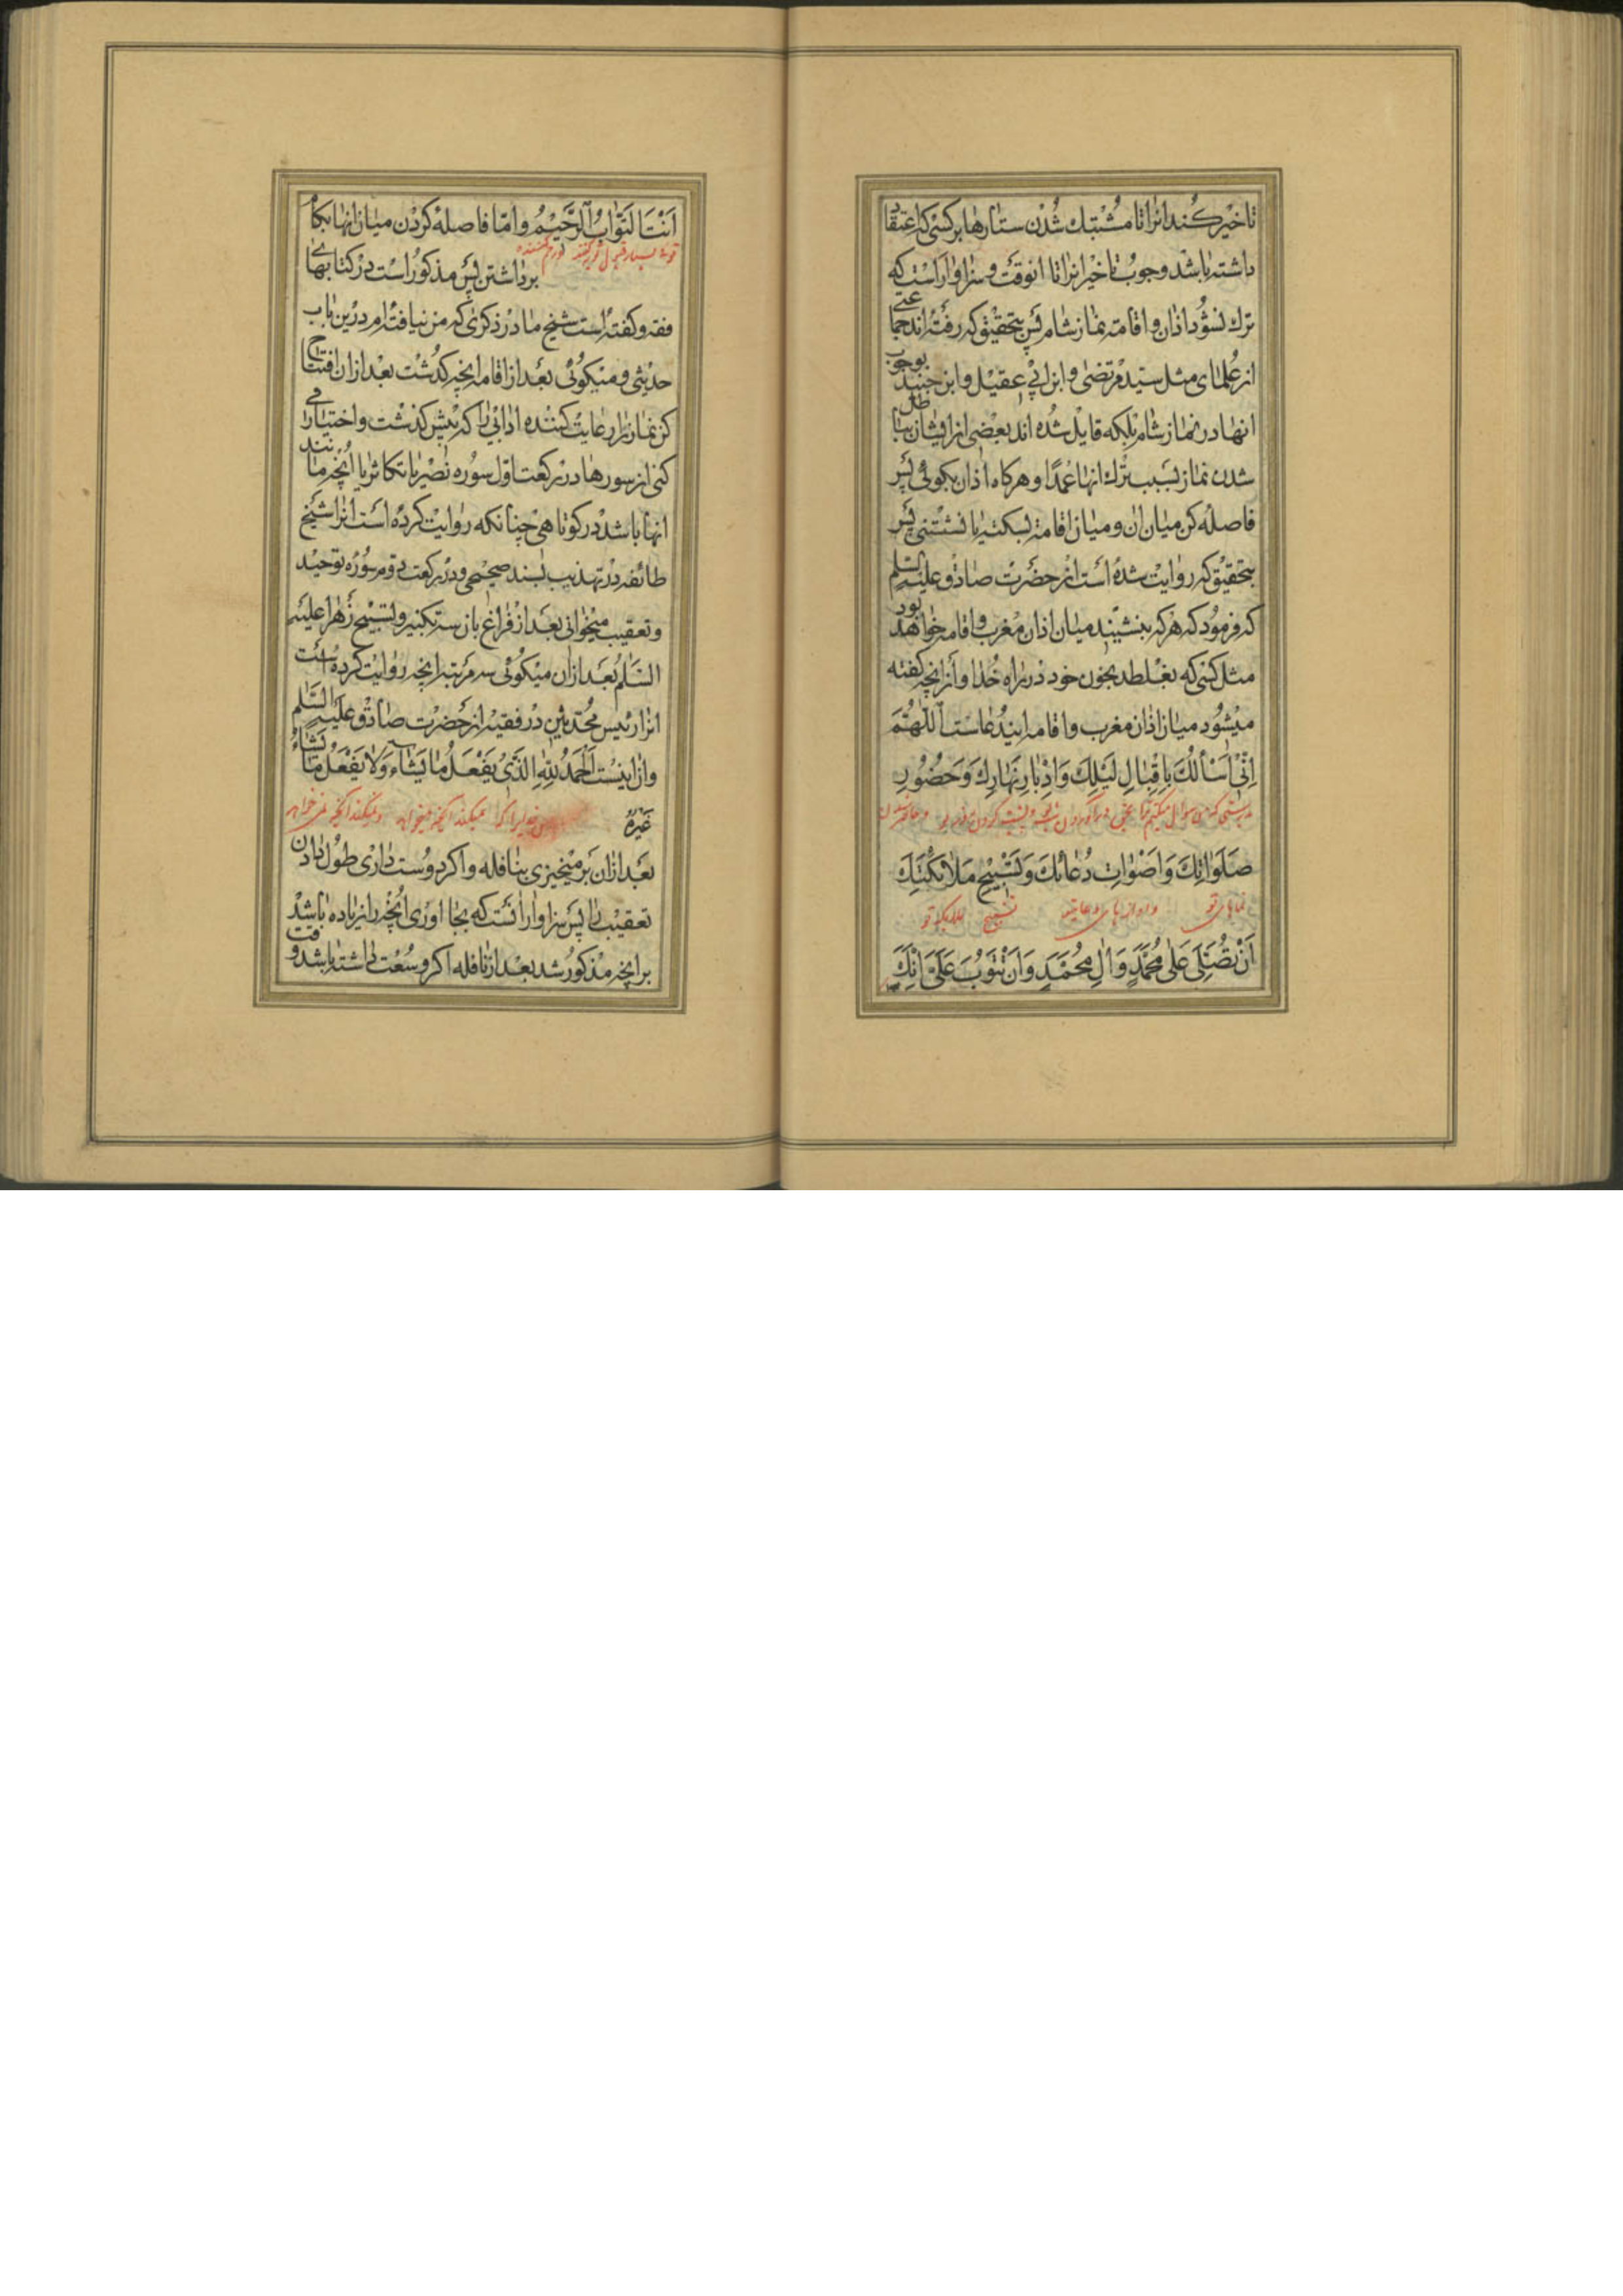 تاخیر کند انرا تا مشتبك شدن ستارها بر کسی که اعتقاد
داشته باشد وجوب تاخیر انرا تا انوقت و سزاوار است که
ترك نشود اذان و اقامه نماز شام پس بتحقیق که رفته اند جماعتی
از علمای مثل سید مرتضی و ابن ابی عقیل و ابن جنید بوجوب
انها در نماز شام بلکه قایل شده اند بعضی از ایشان بباطل
شدن نماز بسبب ترك انها عمدا و هرکاه اذان بکوئی پس
فاصله کن میان ان و میان اقامه بسکته یا نشستنی پس
بتحقیق که روایت شده است از حضرت صادق علیه السلم
که فرمود که هر که بنشیند میان اذان مغرب و اقامه خواهد بود
مثل کسی که بغلطد بخون خود در راه خدا و از انچه کفته
میشود میان اذان مغرب و اقامه ایندعاست اللهم
اِنّی اَسْأَلُكَ بِاِقْبٰالِ لَیْلِكَ وَاِدْبٰارِ نَهٰارِكَ وَحُضُورِ
بدرستی که من سوال میکنم ترا بحق
صَلَوٰاتِكَ وَاَصْوٰاتِ دُعٰائِكَ وَتَسْبیحِ مَلٰائِكَتِكَ
نمازهای تو و اوازهای دعای تو تسبیح ملایکه تو
اَنْ تُصَلِّیَ عَلٰی مُحَمَّدٍ وَاٰلِ مُحَمَّدٍ وَاَنْ تَتُوبَ عَلَیَّ اِنَّكَ
اَنْتَ التَّوّٰابُ الرَّحیمُ و امّا فاصله کردن میان انها بکام
توئی بسیار قبول توبه کننده و رحم کننده
برداشتن پس مذکور است در کتابهای
فقه و کفته است شیخ ما در ذکری که من نیافته ام درین باب
حدیثی و میکوئی بعد از اقامه انچه کذشت بعد ازان افتتاح
کن نماز را رعایت کننده ادابی را که پیش کذشت و اختیار می
کنی از سورها در رکعت اول سوره نصر یا تکاثر یا انچه مانند
انها باشد در کوتاهی چنانکه روایت کرده است انرا شیخ
طائفه در تهذیب بسند صحیحی و در رکعت دوم سوره توحید
و تعقیب میخوانی بعد از فراغ باز سه تکبیر و تسبیح زهرا علیه
السلم بعد ازان میکوئی سه مرتبه انچه روایت کرده است
انرا رئیس محدثین در فقیه از حضرت صادق علیه السلم
و ان اینست اَلْحَمْدُ لِلّٰهِ الَّذی یَفْعَلُ مٰا یَشٰاءُ وَلٰا یَفْعَلُ مٰا یَشٰاءُ
غَیْرُهُ
میکند انچه میخواهد و نمیکند انچه می خواهد
بعد ازان بر میخیزی بنافله و اکر دوست داری طول دادن
تعقیب را پس سزاوار انست که بجا اوری انچه را زیاده باشد
بر انچه مذکور شد بعد از نافله اکر وسعت داشته باشد وقت